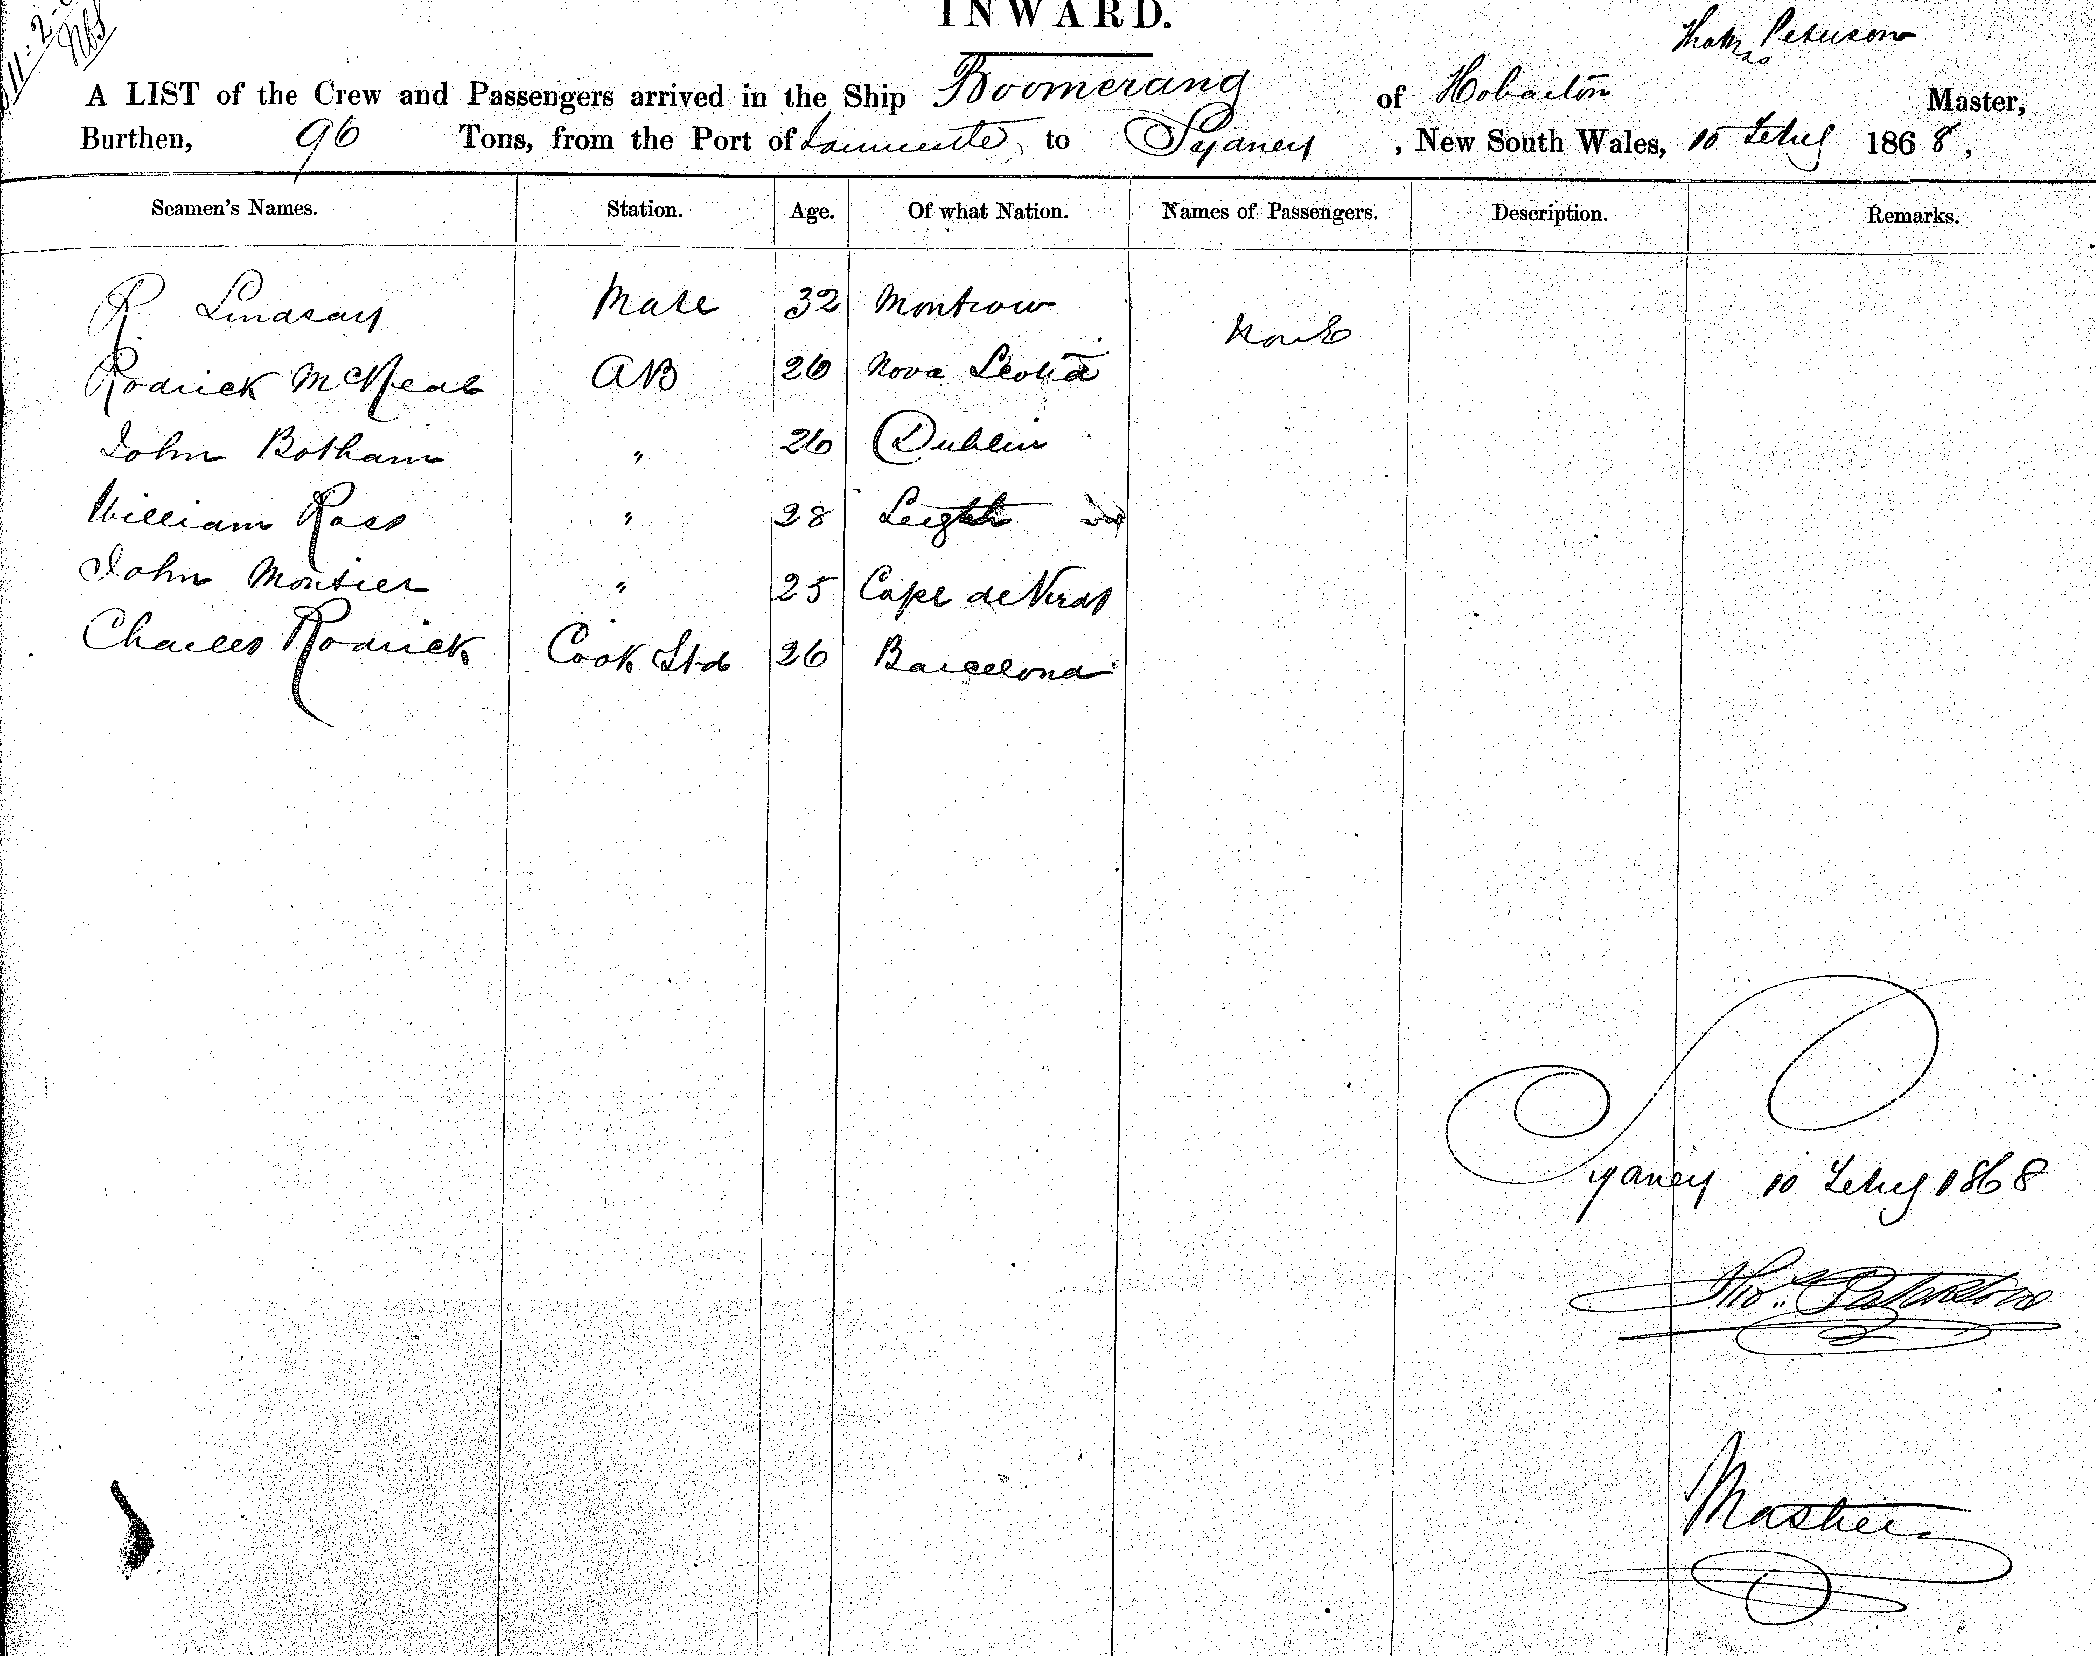 INWARD.
Thos Peterson
A LIST of the Crew and Passengers arrived in the Ship Boomerang of Hobarton Master,
Burthen, 96 Tons, from the Port of to Sydney, New South Wales, 10 Feby 1868,
Seamen's Names. Station. Age. Of what Nation. Names of Passengers. Description. Remarks.
R Lindsay Mate 32 Montrose None
Rodrick McNeal AB 26 Nova Scotia
John Botham " 26 Dublin
William Ross " 28 Leith
John Monsier " 25 Cape de Verds
Charles Rodrick Cook Std 26 Barcelona
Sydney 10 Feby 1868
Thos. Peterson
Master